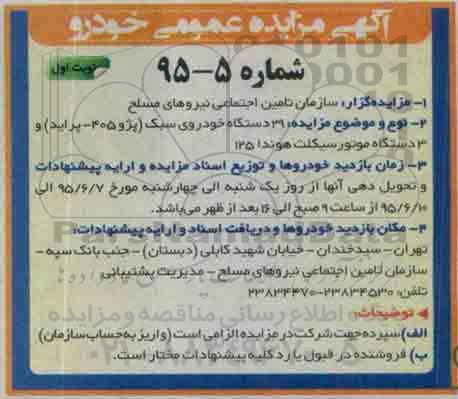 آگهی مزایده عمومی خودرو
نوبت اول
شماره ۵-۹۵
۱- مزایده‌گزار: سازمان تامین اجتماعی نیروهای مسلح
۲- نوع و موضوع مزایده: ۳۹ دستگاه خودروی سبک (پژو ۴۰۵- پراید) و
۳ دستگاه موتورسیکلت هوندا ۱۲۵
۳- زمان بازدید خودروها و توزیع اسناد مزایده و ارایه پیشنهادات
و تحویل دهی آنها از روز یک شنبه الی چهارشنبه مورخ ۹۵/۶/۷ الی
۹۵/۶/۱۰ از ساعت ۹ صبح الی ۱۶ بعد از ظهر می‌باشد.
۴- مکان بازدید خودروها و دریافت اسناد و ارایه پیشنهادات:
تهران- سیدخندان- خیابان شهید کابلی (دبستان)- جنب بانک سپه-
سازمان تامین اجتماعی نیروهای مسلح- مدیریت پشتیبانی
تلفن: ۲۳۸۳۴۵۳۰-۲۳۸۳۴۴۷۰
توضیحات:
الف) سپرده جهت شرکت در مزایده الزامی است (واریز به حساب سازمان)
ب) فروشنده در قبول یا رد کلیه پیشنهادات مختار است.